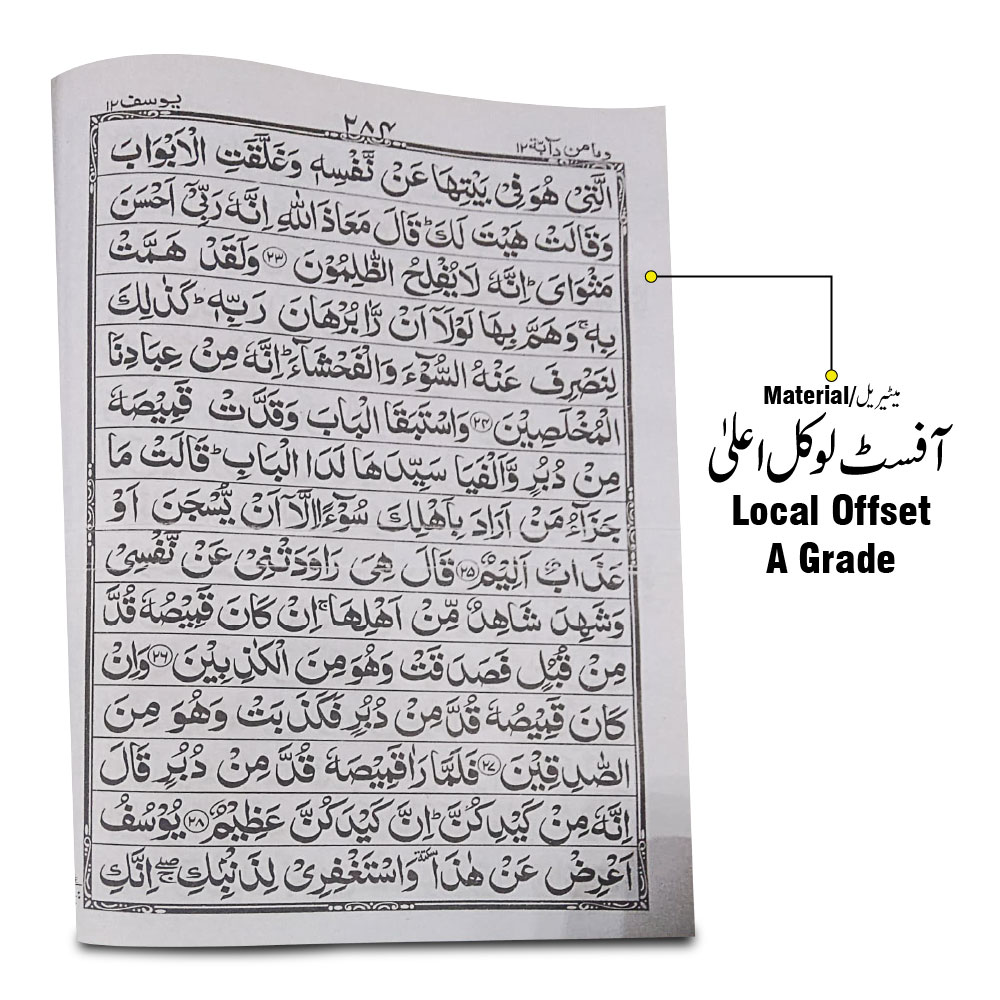 يوسف ١٢
٢٨٤
وما من دآبة ١٢
الَّتِىْ هُوَ فِىْ بَيْتِهَا عَنْ نَّفْسِهٖ وَغَلَّقَتِ الْاَبْوَابَ
وَقَالَتْ هَيْتَ لَكَ ؕ قَالَ مَعَاذَ اللّٰهِ اِنَّهٗ رَبِّىْۤ اَحْسَنَ
مَثْوَاىَ ؕ اِنَّهٗ لَا يُفْلِحُ الظّٰلِمُوْنَ ﴿۲۳﴾ وَلَقَدْ هَمَّتْ
بِهٖ ۚ وَهَمَّ بِهَا لَوْلَاۤ اَنْ رَّاٰ بُرْهَانَ رَبِّهٖ ؕ كَذٰلِكَ
لِنَصْرِفَ عَنْهُ السُّوْٓءَ وَالْفَحْشَآءَ ؕ اِنَّهٗ مِنْ عِبَادِنَا
الْمُخْلَصِيْنَ ﴿۲۴﴾ وَاسْتَبَقَا الْبَابَ وَقَدَّتْ قَمِيْصَهٗ
مِنْ دُبُرٍ وَّاَلْفَيَا سَيِّدَهَا لَدَا الْبَابِ ؕ قَالَتْ مَا
جَزَآءُ مَنْ اَرَادَ بِاَهْلِكَ سُوْٓءًا اِلَّاۤ اَنْ يُّسْجَنَ اَوْ
عَذَابٌ اَلِيْمٌ ﴿۲۵﴾ قَالَ هِىَ رَاوَدَتْنِىْ عَنْ نَّفْسِىْ
وَشَهِدَ شَاهِدٌ مِّنْ اَهْلِهَا ۚ اِنْ كَانَ قَمِيْصُهٗ قُدَّ
مِنْ قُبُلٍ فَصَدَقَتْ وَهُوَ مِنَ الْكٰذِبِيْنَ ﴿۲۶﴾ وَاِنْ
كَانَ قَمِيْصُهٗ قُدَّ مِنْ دُبُرٍ فَكَذَبَتْ وَهُوَ مِنَ
الصّٰدِقِيْنَ ﴿۲۷﴾ فَلَمَّا رَاٰ قَمِيْصَهٗ قُدَّ مِنْ دُبُرٍ قَالَ
اِنَّهٗ مِنْ كَيْدِكُنَّ ؕ اِنَّ كَيْدَكُنَّ عَظِيْمٌ ﴿۲۸﴾ يُوْسُفُ
اَعْرِضْ عَنْ هٰذَا ٚ وَاسْتَغْفِرِىْ لِذَنْۢبِكِ ۖ ۚ اِنَّكِ
Material/میٹیریل
آفسٹ لوکل اعلیٰ
Local Offset
A Grade